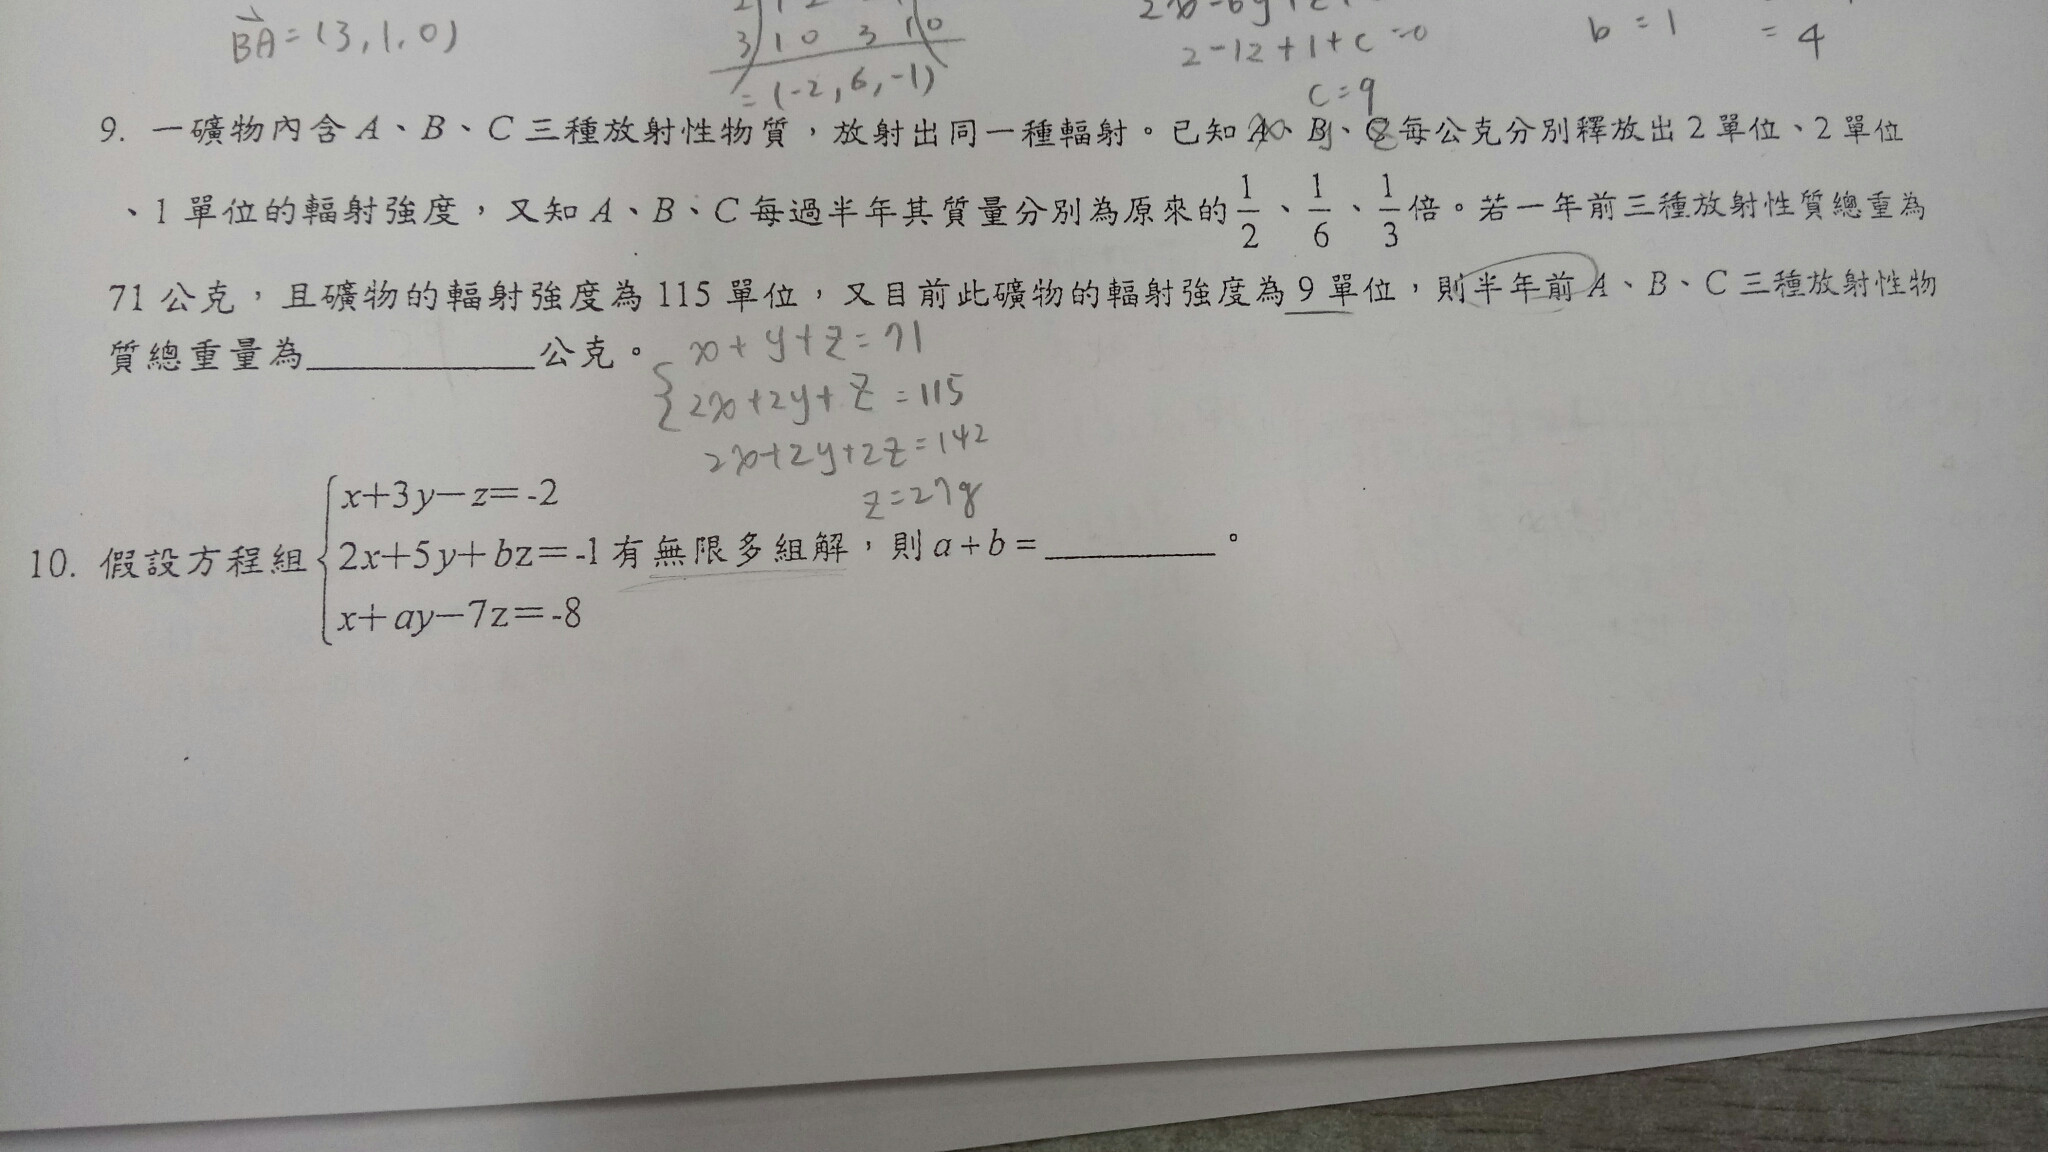 BA=(3,1,0)
3 1 0 3 1 0
=(-2,6,-1)
2-12+1+c=0
c=9
b=1
=4
9. 一礦物內含A、B、C三種放射性物質，放射出同一種輻射。已知A、B、C每公克分別釋放出2單位、2單位
、1單位的輻射強度，又知A、B、C每過半年其質量分別為原來的1/2、1/6、1/3倍。若一年前三種放射性質總重為
71公克，且礦物的輻射強度為115單位，又目前此礦物的輻射強度為9單位，則半年前A、B、C三種放射性物
質總重量為＿＿＿＿公克。
x+y+z=71
2x+2y+z=115
2x+2y+2z=142
z=27g
10. 假設方程組
x+3y－z＝-2
2x+5y+bz＝-1
x+ay－7z＝-8
有無限多組解，則a+b=＿＿＿＿。